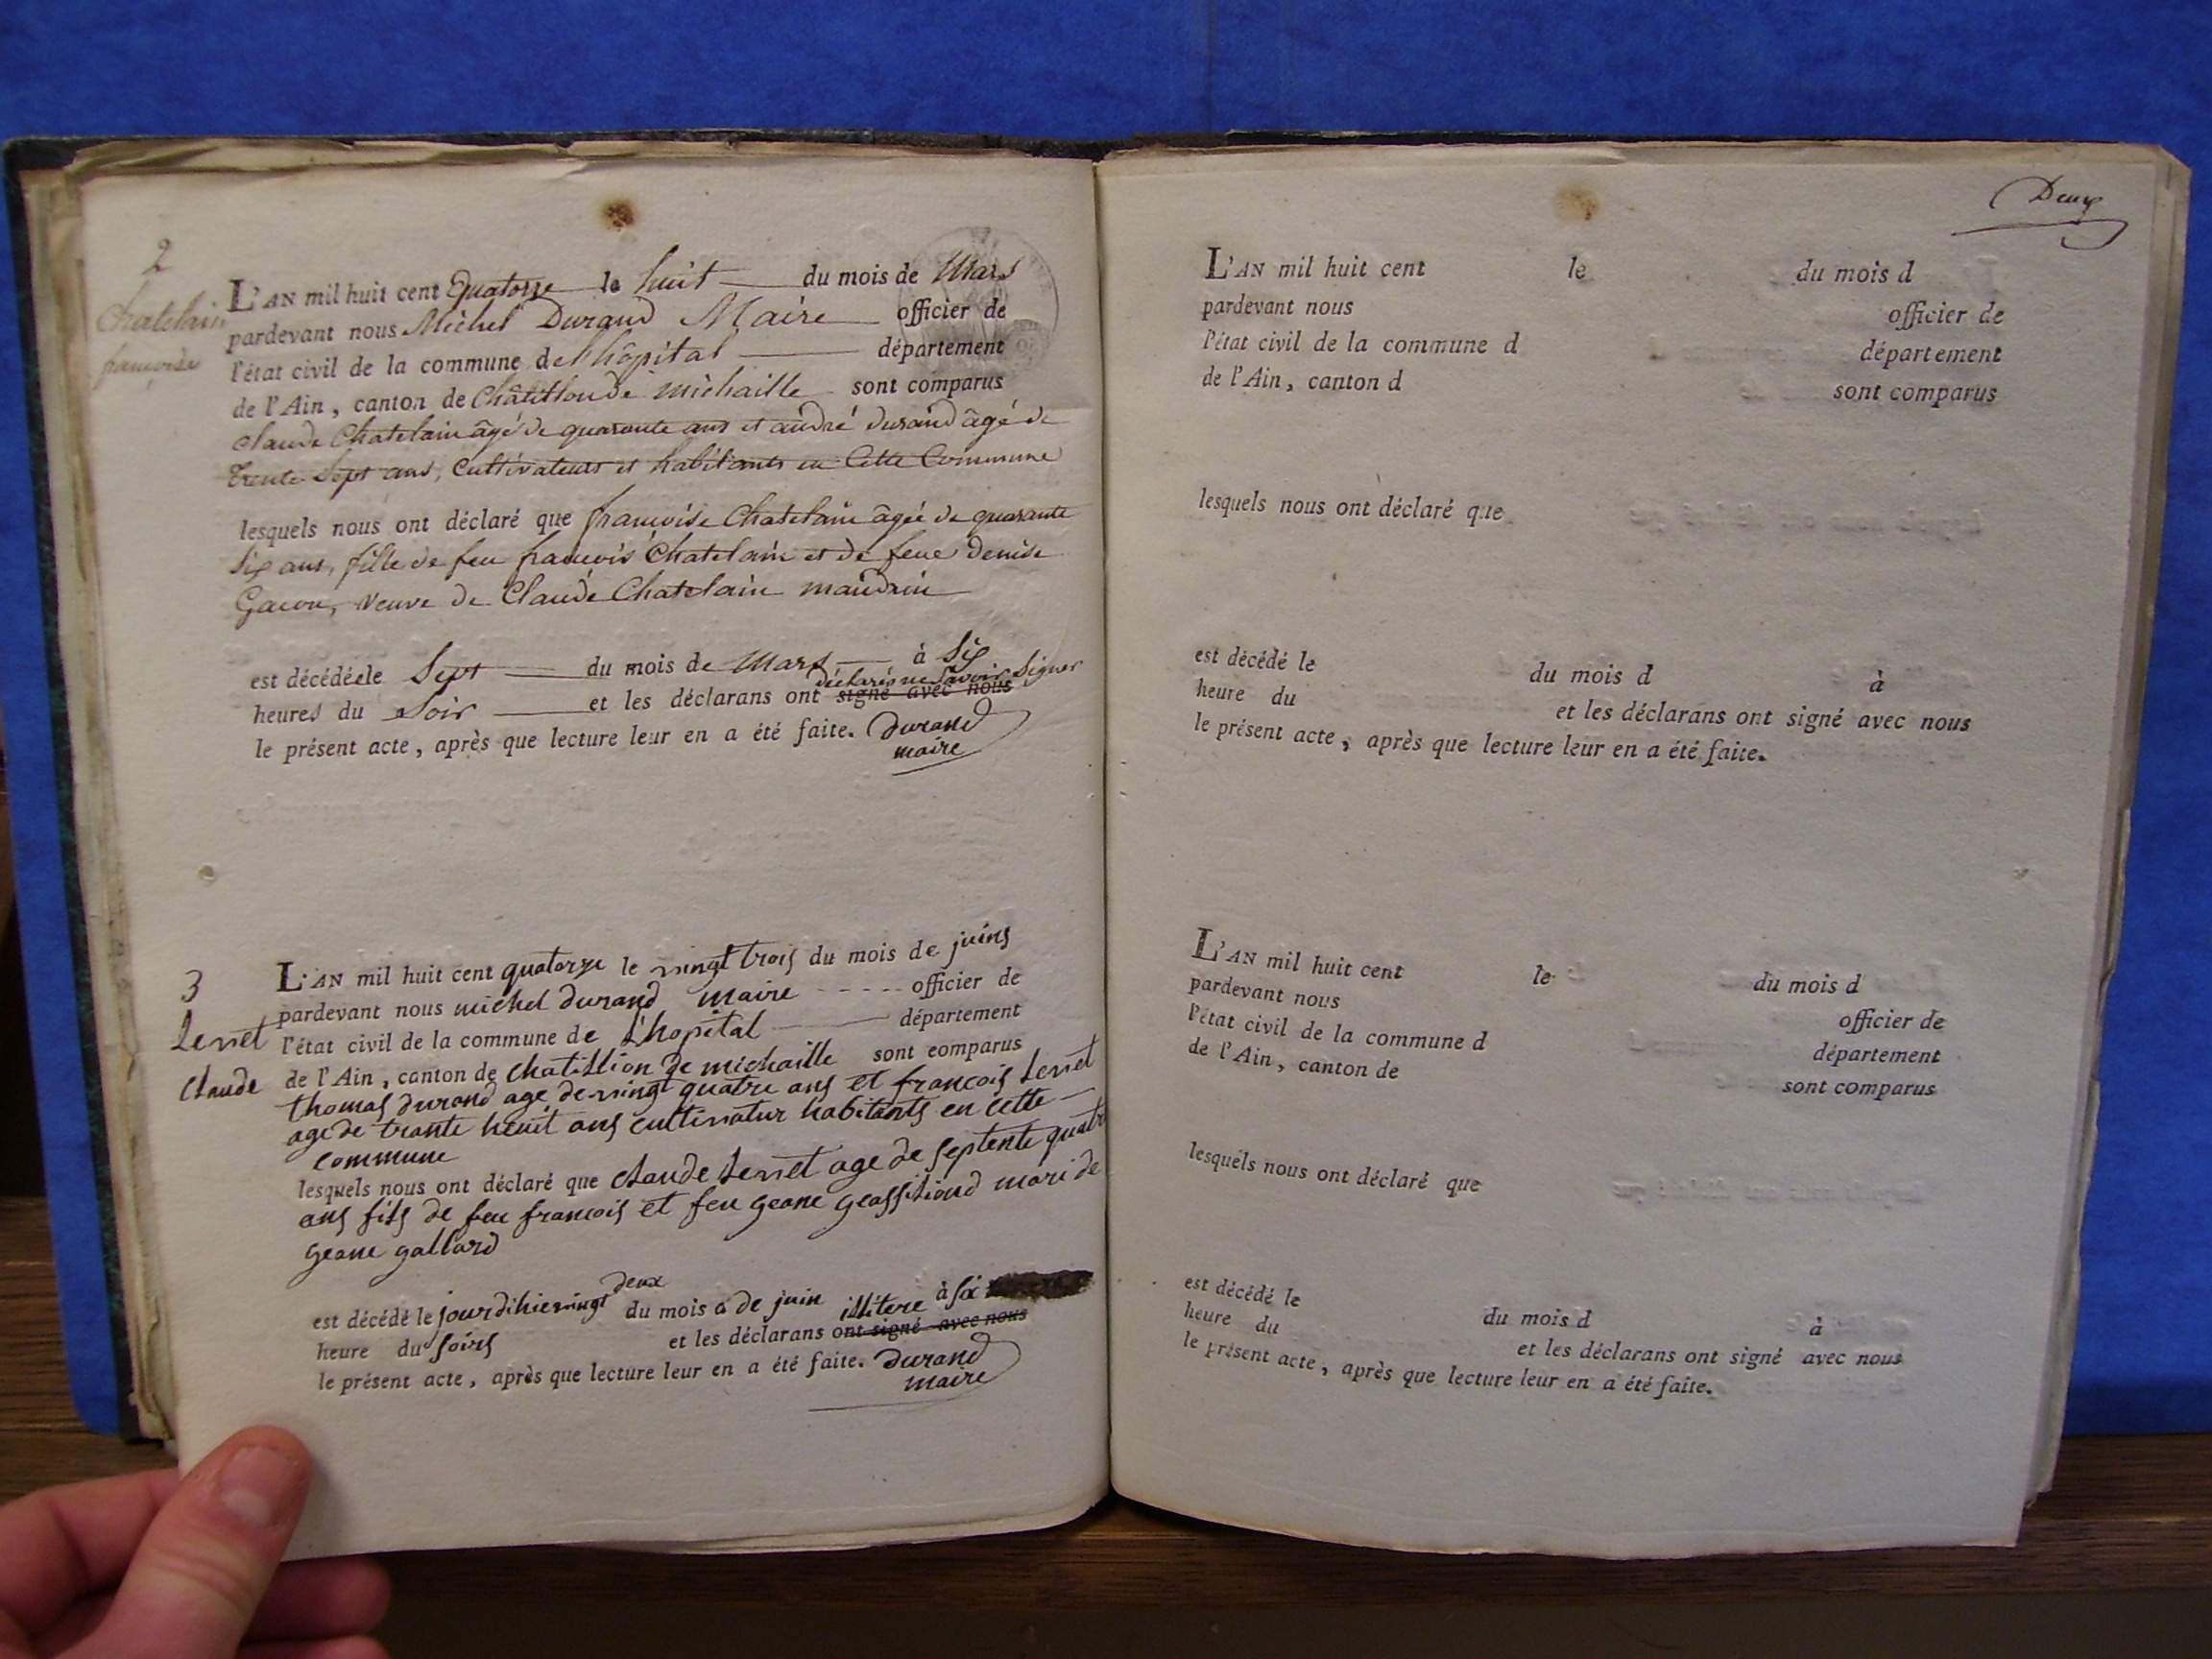 2
Chatelain
françoise
L'AN mil huit cent Quatorze le huit du mois de Mars
pardevant nous Michel Durand Maire officier de
l'état civil de la commune de l'hôpital département
de l'Ain, canton de Châtillon de michaille sont comparus
claude Chatelain âgé de quarante ans et andré durand âgé de
trente sept ans, Cultivateurs et habitants en Cette Commune
lesquels nous ont déclaré que françoise Chatelain âgée de quarante
six ans, fille de feu francois Chatelain et de feue denise
Gacon, veuve de Claude Chatelain mandrin
est décédée le Sept du mois de Mars à Six
déclarés ne Savoir Signer
heures du Soir et les déclarans ont signé avec nous
le présent acte, après que lecture leur en a été faite. Durand
maire
3
Levret
Claude
L'AN mil huit cent quatorze le vingt trois du mois de juins
pardevant nous michel durand maire officier de
l'état civil de la commune de L'hopital département
de l'Ain, canton de chatillion de michaille sont comparus
thomas durand age de vingt quatre ans et francois Levret
age de trante heuit ans cultivatur habitants en cette
commune
lesquels nous ont déclaré que claude Levret age de septente quatr
ans fils de feu francois et feu geane mari de
geane gallard
deux
est décédé le jourdihie vingt du mois a de juin illitere à six
heure du soirs et les déclarans ont signé avec nous
le présent acte, après que lecture leur en a été faite. Durand
maire
Deux
L'AN mil huit cent le du mois d
pardevant nous officier de
l'état civil de la commune d département
de l'Ain, canton d sont comparus
lesquels nous ont déclaré que
est décédé le du mois d à
heure du et les déclarans ont signé avec nous
le présent acte, après que lecture leur en a été faite.
L'AN mil huit cent le du mois d
pardevant nous officier de
l'état civil de la commune d département
de l'Ain, canton de sont comparus
lesquels nous ont déclaré que
est décédé le du mois d à
heure du et les déclarans ont signé avec nous
le présent acte, après que lecture leur en a été faite.